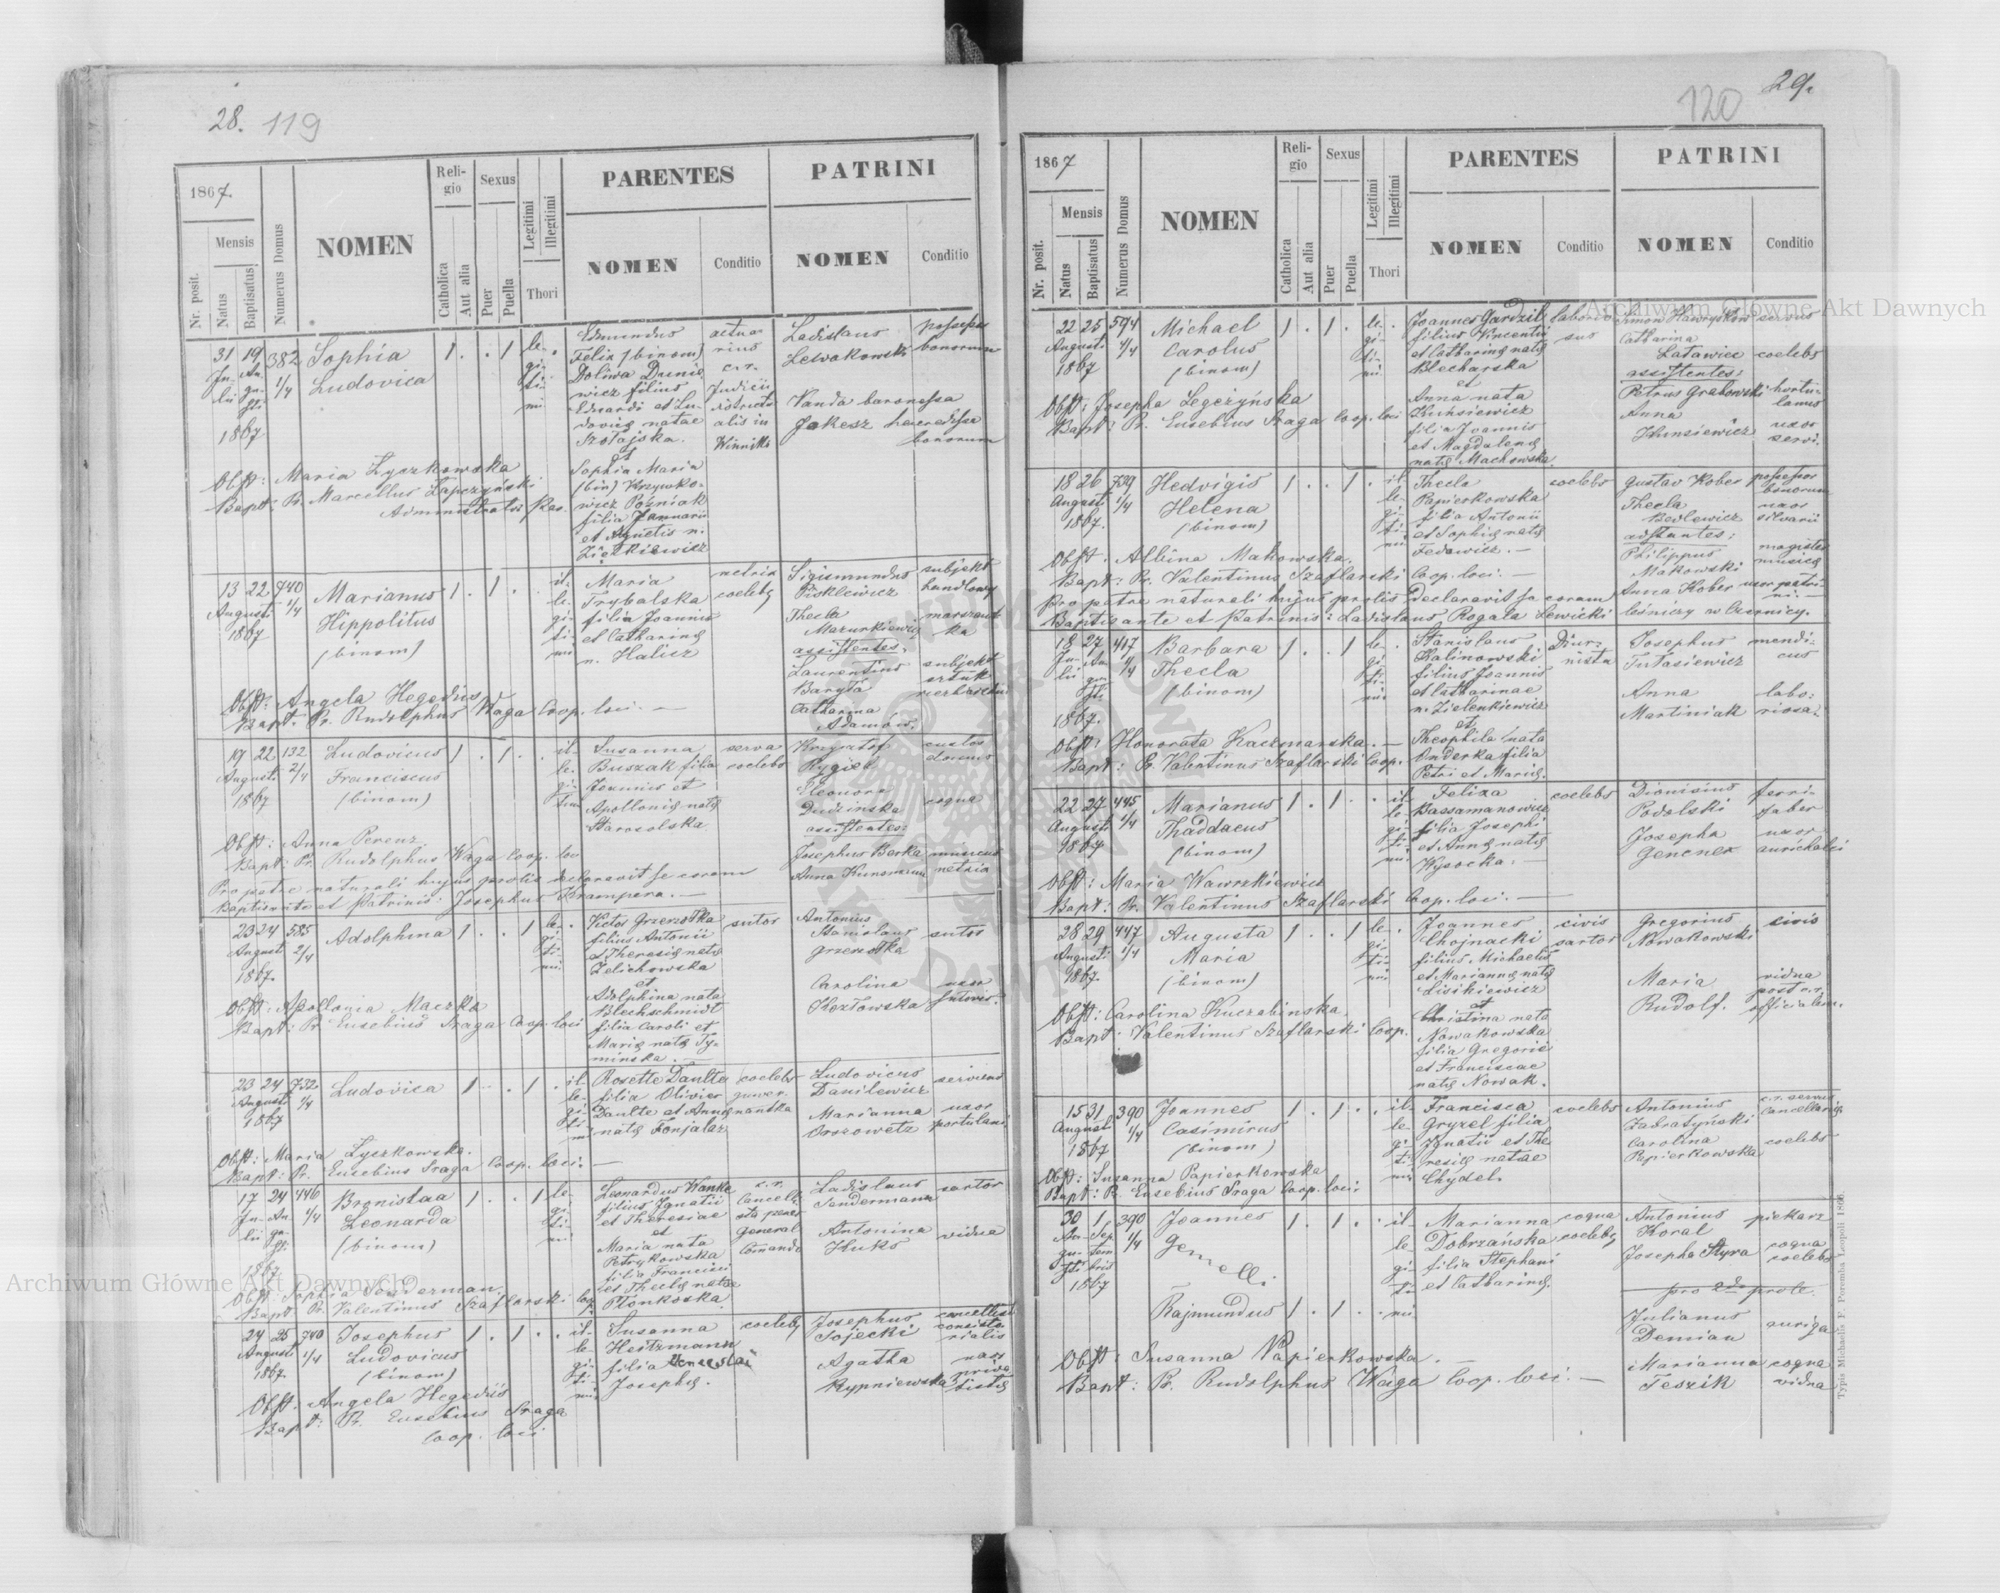 28. 119
1867.
Mensis
Nr. posit.
Natus
Baptisatus
Numerus Domus
NOMEN
Religio
Catholica
Aut alia
Sexus
Puer
Puella
Legitimi
Illegitimi
Thori
PARENTES
NOMEN
Conditio
PATRINI
NOMEN
Conditio
31 19 382
1/4
1867
Sophia
Ludovica
1 . . 1
le-
gi-
ti-
mi
Edmundus
Felix (binom)
Doliwa Dunie
wicz filius
Eduardi et Lu-
dovicę natae
Szołajska.
et
Sophia Maria
(bin) Krzywko-
wicz Poźniak
filia Januarii
et Agnetis n.
Ziętkiewicz
actua
rius
c.r.
Judicii
districtu
alis in
Winniki
Ladislaus
Lewakowski
Vanda baronessa
Jakesz haeredessa
bonorum
possessor
bonorum
Obst: Maria Łyczkowska
Bapt: Pr. Marcellus Łapczyński
Administrator
13 22 740
August 1/4
1867
Marianus
Hippolitus
(binom)
1 . 1 .
il-
le-
gi-
ti-
mi
Maria
Trybalska
filia Joannis
et Catharinę
n. Halicz
coelebs
Sigismundus
Pisklewicz
Thecla
Mazurkiewicz
assistentes:
Laurentius
Baryła
Catharina
Adamów.
subjekt
handlowy
subjekt
Obst: Angela Hegedüs
Bapt: Pr. Rudolphus Waga Coop. loci. —
19 22 132
August. 2/4
1867
Ludovicus
Franciscus
(binom)
1 . 1 .
il-
le-
gi-
timi
Susanna
Buszak filia
Joannis et
Apollonię natę
Starosolska
serva
coelebs
Krysztof
Rygiel
Eleonora
Dudzińska
assistentes:
Josephus Berka
Anna Kunsmann
custos
domus
cogna
Obst: Anna Perenz
Bapt: Pr. Rudolphus Waga Coop. loci
Pro patre naturali hujus prolis declaravit se coram
Baptisante et Patrinis: Josephus Krampera. —
23 24 585
August 2/4
1867.
Adolphina
1 . . 1
le-
gi-
ti-
mi
Victor Grzezołka
filius Antonii
et Theresię natę
Zelichowska
et
Adolphina nata
Blechschmidt
filia Caroli et
Marię natę Ty-
mińska. —
sutor
Antonius
Stanislaus
Grzezołka
Carolina
Kozłowska
sutor
uxor
sutoris.
Obst: Apollonia Maczka
Bapt: Pr. Eusebius Sraga Coop. loci
23 24 732
August 1/4
1867
Ludovica
1 . . 1 .
il-
le-
gi-
ti-
mi
Rosette Daulte
filia Olivier
Daulte et Annę
natę Fonjalaz
coelebs
guwer-
nantka
Ludovicus
Danilewicz
Marianna
Orszowetz
uxor
Obst: Maria Łyszkowska.
Bapt: Pr. Eusebius Sraga Coop. loci. —
17 24 446
1/4
1867
Bronislaa
Leonarda
(binom)
1 . . 1
le-
gi-
ti-
mi
Leonardus Wanke
filius Ignatii
et Theresiae
et
Maria nata
Petrykowska
filia Francisci
et Theclę natae
Płonkoska.
c.r.
Cancelli
sta penes
general
Comando
Ladislaus
Sendermann
Antonina
Huks
sartor
vidua
Obst: Sophia Senderman.
Bapt: Pr. Valentinus Szaflarski Coop
24 25 740
August. 1/4
1867.
Josephus
Ludovicus
(binom)
1 . 1 . .
il-
le-
gi-
ti-
mi
Susanna
Heitzmann
filia Wenceslai
Josephę.
coelebs
Josephus
Sojecki
Agatha
Rypniewska
cancellist
consisto
rialis
uxor
Obst. Angela Hegedüs
Bapt: Pr. Eusebius Sraga
Coop. loci
120 29.
1867
Mensis
Nr. posit.
Natus
Baptisatus
Numerus Domus
NOMEN
Religio
Catholica
Aut alia
Sexus
Puer
Puella
Legitimi
Illegitimi
Thori
PARENTES
NOMEN
Conditio
PATRINI
NOMEN
Conditio
22 25 594
August. 1/4
1867
Michael
Carolus
(binom)
1 . 1 .
le-
gi-
ti-
mi.
Joannes Gardzil
filius Vincentii
et Catharinę natę
Blecharska
et
Anna nata
Huńsiewicz
filia Joannis
et Magdalenę
natę Machowska.
laborio
sus
Simon Hawryłków
Catharina
Latawiec
assistentes:
Petrus Grabowski
Anna
Hunsiewicz
servus
coelebs
hortu-
lanus
uxor
servi.
Obst: Josepha Legeżyńska
Bapt: Pr. Eusebius Sraga Coop. loci
18 26 739
August. 1/4
1867.
Hedvigis
Helena
(binom)
1 . . 1 .
il-
le-
gi-
ti-
mi
Thecla
Papierkowska
filia Antonii
et Sophię natę
Fedowicz. —
coelebs
Gustav Kober
Thecla
Bedlewicz
adstantes:
Philippus
Makowski
Anna Kober
possessor
bonorum
uxor
silvarii
magister
musicę
uxor patri-
ni. —
Obst. Albina Makowska.
Bapt: Pr. Valentinus Szaflarski Coop. loci. —
Pro patre naturali hujus prolis declaravit se coram
Baptisante et Patrinis: Ladislaus Rogala Lewicki leśniczy w Czernicy.
18 27 417
1/4
1867.
Barbara
Thecla
(binom)
1 . . 1
le-
gi-
ti-
mi
Stanislaus
Kalinowski
filius Joannis
et Catharinae
n. Zielenkiewicz
et
Theophila nata
Onderka filia
Petri et Marię.
Diur-
nista
Josephus
Tutasiewicz
Anna
Martiniak
mendi-
cus
labo-
riosa.
Obst: Honorata Kaczmarska. —
Bapt: Pr. Valentinus Szaflarski Coop.
22 27 445
August 1/4
1867
Marianus
Thaddaeus
(binom)
1 . 1 . .
il-
le-
gi-
ti-
mi.
Felixa
Bassamanowicz
filia Josephi
et Annę natę
Wysocka. —
coelebs
Dionisius
Podolski
Josepha
Gencner
ferri-
faber
uxor
aurichalci
Obst: Maria Wawrzkiewicz
Bapt: Pr. Valentinus Szaflarski Coop. loci. —
28 29 447
August 1/4
1867.
Augusta
Maria
(binom)
1 . . 1
le-
gi-
ti-
mi
Joannes
Chojnacki
filius Michaelis
et Mariannę natę
Lisikiewicz
et
Christina nata
Nowakowska
filia Gregorii
et Franciscae
natę Nowak.
civis
sartor
Gregorius
Nowakowski
Maria
Rudolf.
civis
vidua
post c.r.
officialem.
Obst: Carolina Kuczabinska.
Bapt: Valentinus Szaflarski Coop.
15 31 390
August 1/4
1867
Joannes
Casimirus
(binom)
1 . 1 . .
il-
le-
gi-
ti-
mi
Francisca
Gryzel filia
Ignatii et The
resię natae
Chydel.
coelebs
Antonius
Zabratyński
Carolina
Papierkowska
c.r. servus
Cancellarię
coelebs
Obst: Susanna Papierkowska
Bapt: Pr. Eusebius Sraga Coop. loci
30 1 390
1/4
1867
Joannes
Gemelli
Rajmundus
1 . 1 . .
1 . 1 . .
il-
le-
gi-
ti-
mi
Marianna
Dobrzańska
filia Stephani
et Catharinę.
cogna
coelebs
Antonius
Koral
Josepha Styra
pro 2da prole.
Julianus
Demian
Marianna
Teszik
piekarz
cogna
coelebs
auriga
cogna
vidua
Obst: Susanna Papierkowska. —
Bapt: Pr. Rudolphus Waga Coop. loci. —
Typis Michaelis F. Poremba Leopoli 1866.
Archiwum Główne Akt Dawnych
Archiwum Główne Akt Dawnych